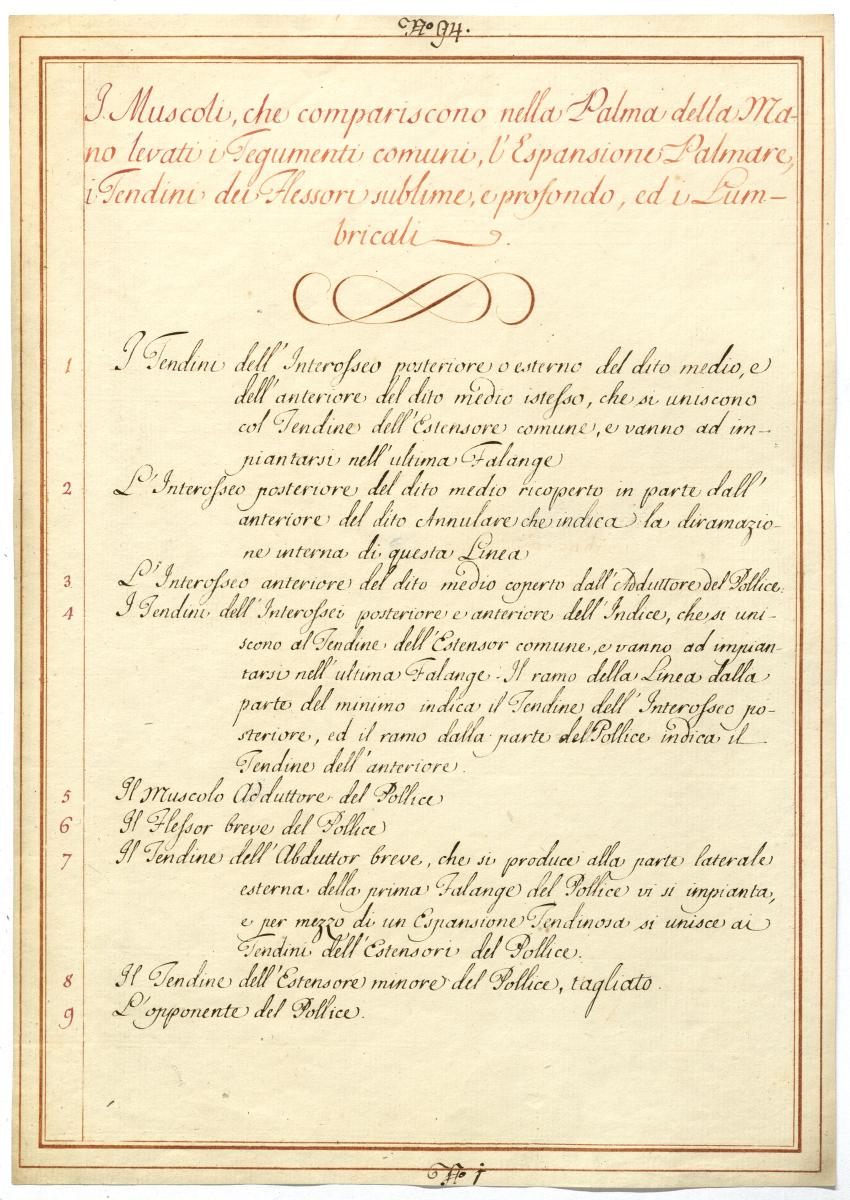 No 94.
I Muscoli, che compariscono nella Palma della Ma-
no levati i Tegumenti comuni, l'Espansione Palmare,
i Tendini dei Flessori sublime, e profondo, ed i Lum-
bricali.
1 I Tendini dell'Interosseo posteriore o esterno del dito medio, e
dell'anteriore del dito medio istesso, che si uniscono
col Tendine dell'Estensore comune, e vanno ad im-
piantarsi nell'ultima Falange
2 L'Interosseo posteriore del dito medio ricoperto in parte dall'
anteriore del dito Annulare che indica la diramazio-
ne interna di questa Linea
3 L'Interosseo anteriore del dito medio coperto dall'Adduttore del Pollice.
4 I Tendini dell'Interossei posteriore e anteriore dell'Indice, che si uni-
scono al Tendine dell'Estensor comune, e vanno ad impian-
tarsi nell'ultima Falange. Il ramo della Linea dalla
parte del minimo indica il Tendine dell'Interosseo po-
steriore, ed il ramo dalla parte del Pollice indica il
Tendine dell'anteriore.
5 Il Muscolo Adduttore del Pollice
6 Il Flessor breve del Pollice
7 Il Tendine dell'Abduttor breve, che si produce alla parte laterale
esterna della prima Falange del Pollice vi si impianta,
e per mezzo di un Espansione Tendinosa si unisce ai
Tendini dell'Estensori del Pollice.
8 Il Tendine dell'Estensore minore del Pollice, tagliato.
9 L'opponente del Pollice.
No 1